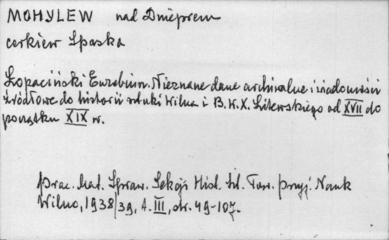 MOHYLEW nad Dnieprem
cerkiew Spaska
Łopaciński Euzebiusz. Nieznane dane archiwalne i wiadomości
źródłowe do historii sztuki Wilna i B. W. X. Litewskiego od XVII do
początku XIX w.
Prac. Mat. Spraw. Sekcji Hist. Szt. Tow. Przyj. Nauk
Wilno, 1938/39, t. III, str. 49-107.